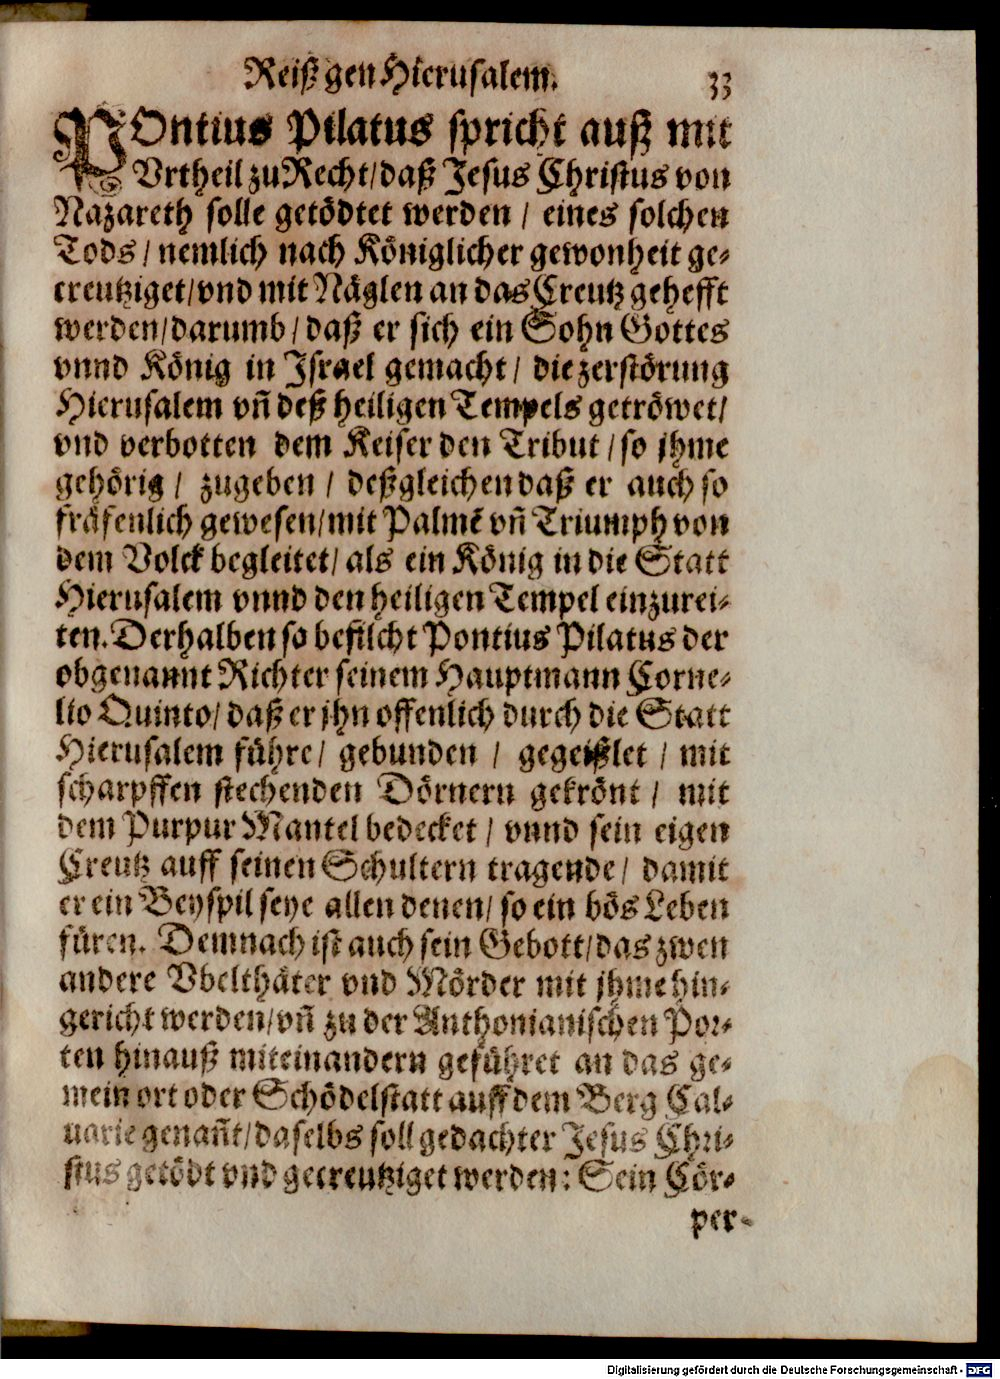 Reiß gen Hierusalem. 33
POntius Pilatus spricht auß mit
Vrtheil zu Recht/ daß Jesus Christus von
Nazareth solle getödtet werden / eines solchen
Tods / nemlich nach Königlicher gewonheit ge-
creutziget/ vnd mit Näglen an das Creutz gehefft
werden/ darumb / daß er sich ein Sohn Gottes
vnnd König in Israel gemacht / die zerstörung
Hierusalem vñ deß heiligen Tempels getröwet/
vnd verbotten dem Keiser den Tribut / so jhme
gehörig / zugeben / deßgleichen daß er auch so
fräfenlich gewesen/ mit Palmē vñ Triumph von
dem Volck begleitet/ als ein König in die Statt
Hierusalem vnnd den heiligen Tempel einzurei-
ten. Derhalben so befilcht Pontius Pilatus der
obgenannt Richter seinem Hauptmann Corne-
lio Quinto/ daß er jhn offenlich durch die Statt
Hierusalem führe/ gebunden / gegeißlet / mit
scharpffen stechenden Dörnern gekrönt / mit
dem Purpur Mantel bedecket / vnnd sein eigen
Creutz auff seinen Schultern tragende / damit
er ein Beyspil seye allen denen/ so ein bös Leben
füren. Demnach ist auch sein Gebott/ das zwen
andere Vbelthäter vnd Mörder mit jhme hin-
gericht werden/ vñ zu der Anthonianischen Por-
ten hinauß miteinandern geführet an das ge-
mein ort oder Schödelstatt auff dem Berg Cal-
uarie genañt/ daselbs soll gedachter Jesus Chri-
stus getödt vnd gecreutziget werden: Sein Cör-
per-
Digitalisierung gefördert durch die Deutsche Forschungsgemeinschaft - DFG